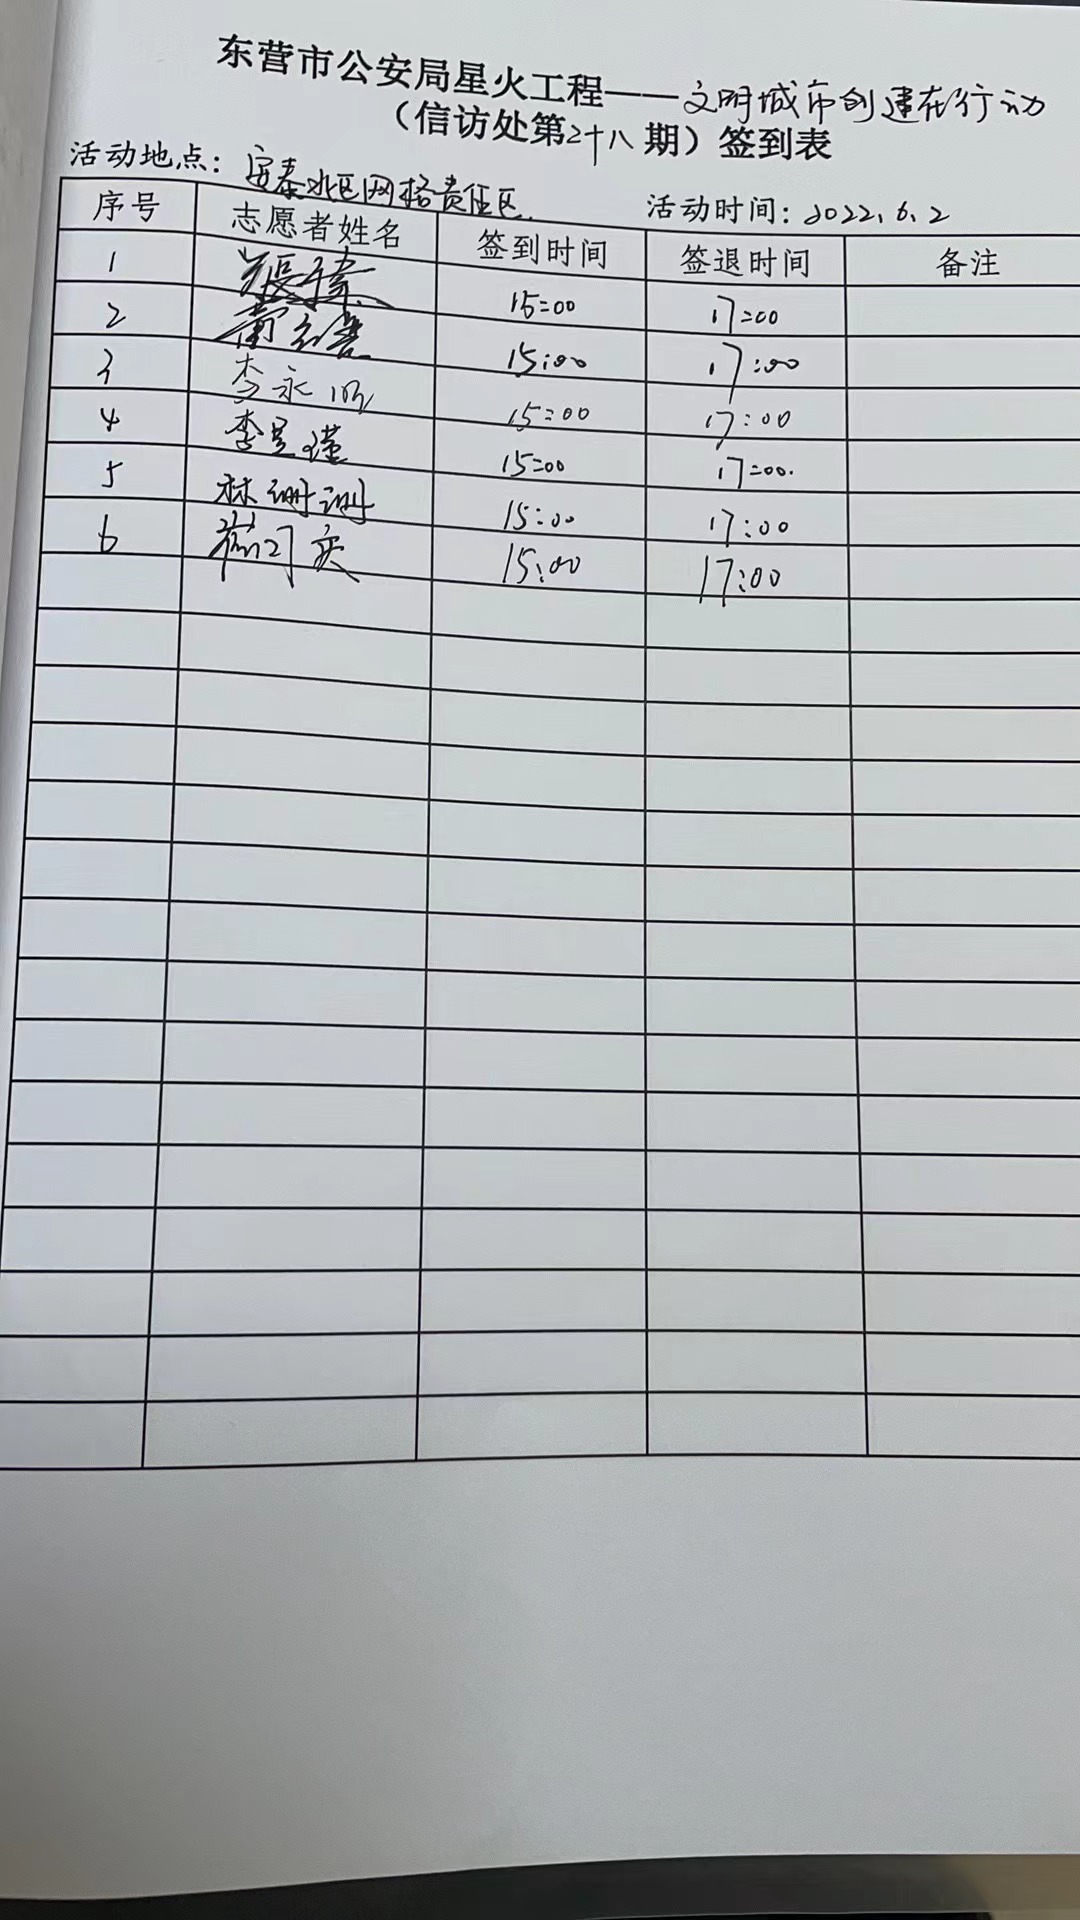 东营市公安局星火工程——文明城市创建在行动
（信访处第二十八期）签到表
活动地点：安泰北区网格责任区
活动时间：2022.6.2
序号 志愿者姓名 签到时间 签退时间 备注
1 15:00 17:00
2 15:00 17:00
3 李永明 15:00 17:00
4 李昱瑾 15:00 17:00.
5 林珊珊 15:00 17:00
6 15:00 17:00